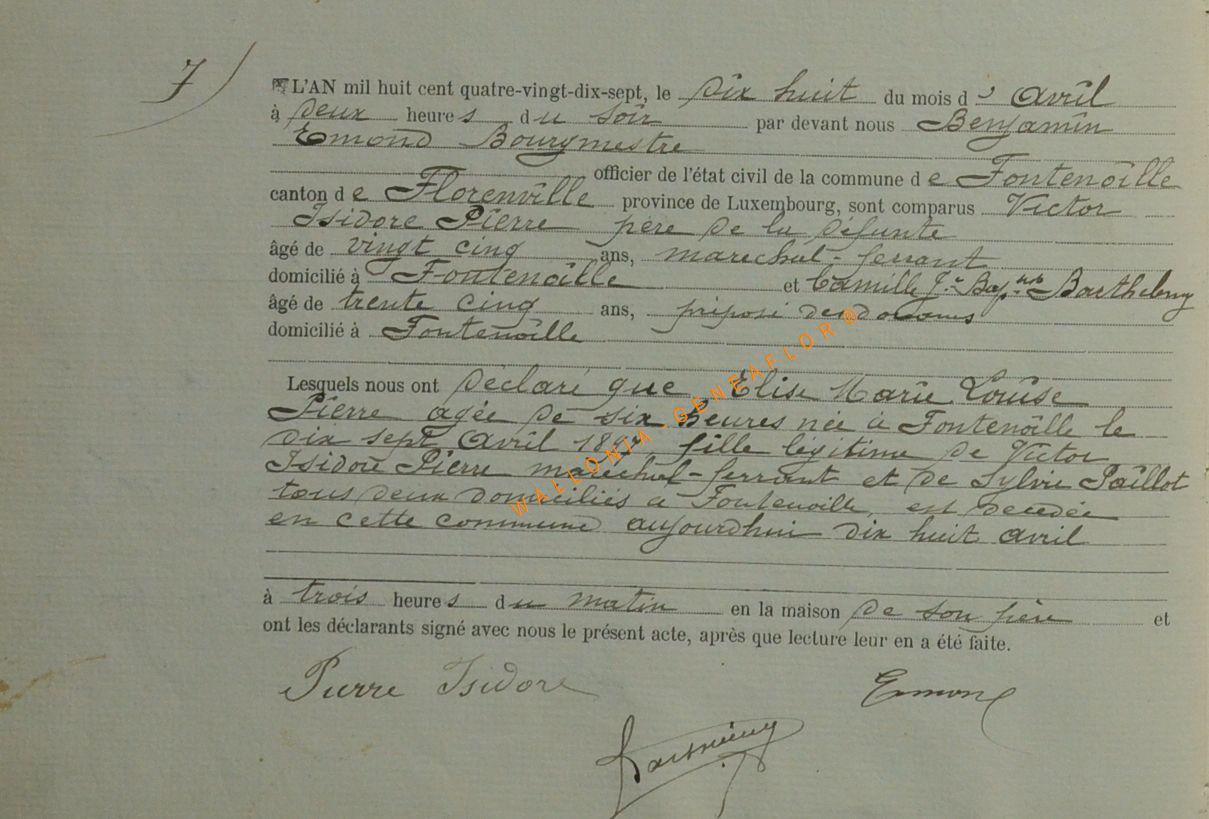 7
L'AN mil huit cent quatre-vingt-dix-sept, le Dix huit du mois d' Avril
à Deux heures du soir par devant nous Benjamin
Emond Bourgmestre
officier de l'état civil de la commune de Fontenoille
canton de Florenville province de Luxembourg, sont comparus Victor
Isidore Pierre père de la Défunte
âgé de vingt cinq ans, marechal-ferrant
domicilié à Fontenoille et Camille Jn Bapte Barthelemy
âgé de trente cinq ans, préposé des douanes
domicilié à Fontenoille
Lesquels nous ont Déclaré que Elise Marie Louise
Pierre agée de six heures née à Fontenoille le
dix sept Avril 1897 fille légitime de Victor
Isidore Pierre marechal-ferrant et de Sylvie Paillot
tous deux domiciliés à Fontenoille, est décédée
en cette commune aujourdhui dix huit avril
à trois heures du matin en la maison de son père et
ont les déclarants signé avec nous le présent acte, après que lecture leur en a été faite.
Pierre Isidore Emond
Barthélemy
WALLONIA-GENEAFLOR®